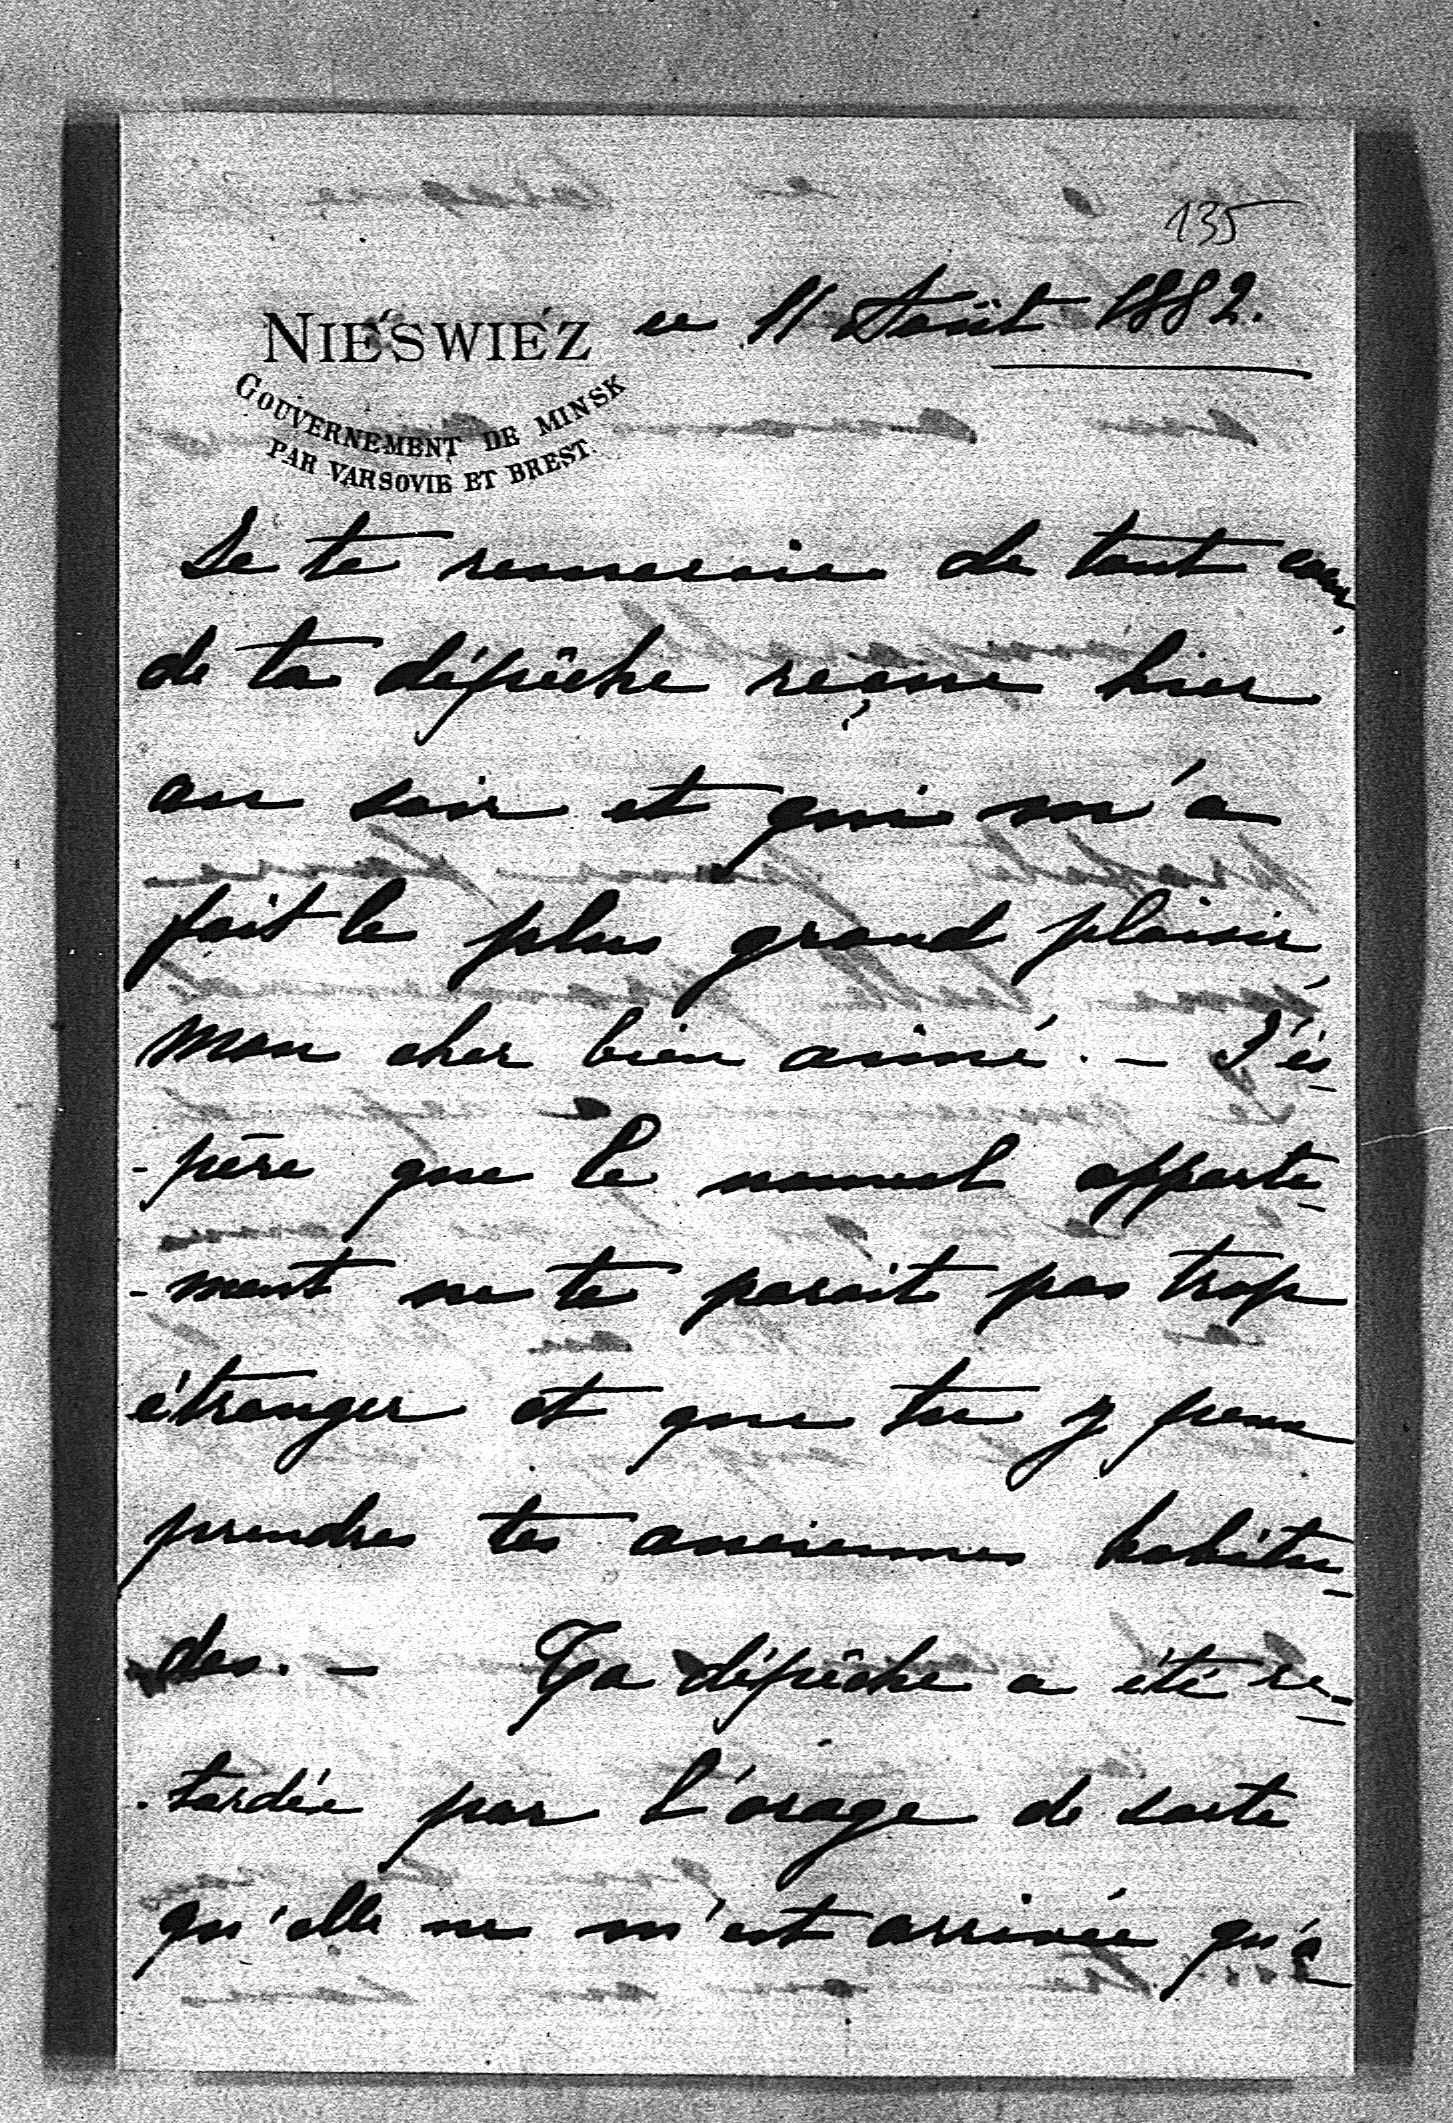 135
NIEŚWIEŹ ce 11 Août 1882.
GOUVERNEMENT DE MINSK
PAR VARSOVIE ET BREST.
Je te remercie de tout cœur
de ta dépêche reçue hier
au soir et qui m'a
fait le plus grand plaisir
mon cher bien aimé. – J'es
-père que le nouvel apparte
-ment ne te parait pas trop
étranger et que tu y peux
prendre tes anciennes habitu
des. – Ta dépêche a été re-
tardée par l'orage de sorte
qu'elle ne m'est arrivée qu'à